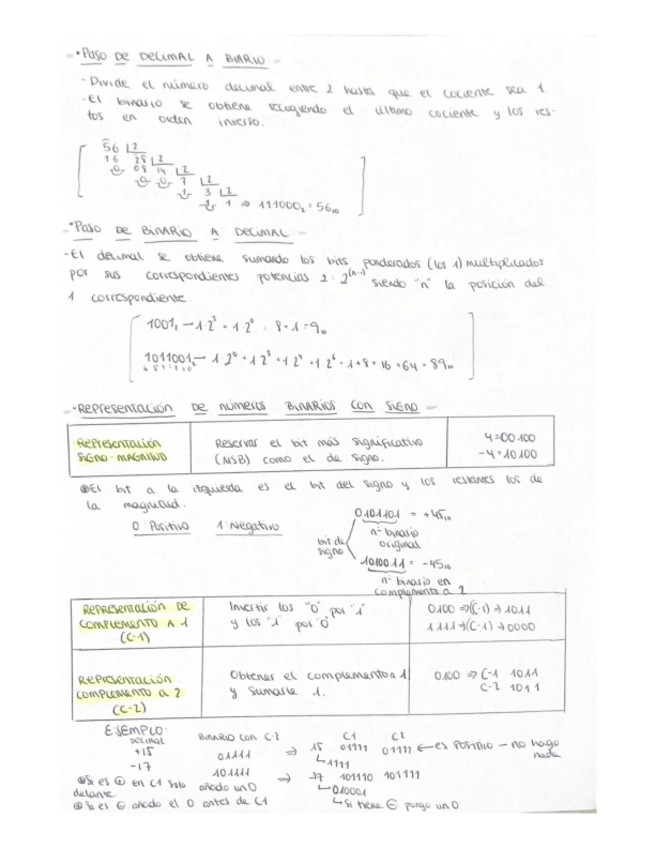 - • Paso DE DECIMAL A BIARIO -
- Divide el número decimal entre 2 hasta que el cociente sea 1.
- El binario se obtiene recogiendo el último cociente y los res-
tos en orden inverso.
56 |2
16 28 |2
0 08 14 |2
0 0 7 |2
1 3 |2
1 1 ⇒ 111000₂ = 56₁₀
- • Paso DE BINARIO A DECIMAL -
- El decimal se obtiene sumando los bits ponderados (los 1) multiplicados
por sus correspondientes potencias 2 : 2⁽ⁿ⁻¹⁾ siendo "n" la posición del
1 correspondiente.
1001₂ → 1·2³ + 1·2⁰ = 8+1 = 9₁₀
1011001₂ → 1·2⁰ + 1·2³ + 1·2⁴ + 1·2⁶ = 1+8+16+64 = 89₁₀
- • REPRESENTACIÓN DE NÚMEROS BINARIOS CON SIGNO -
REPRESENTACIÓN SIGNO-MAGNITUD
Reservar el bit más significativo
(MSB) como el de signo.
4 = 00100
-4 = 10100
El bit a la izquierda es el bit del signo y los restantes los de
la magnitud.
0: Positivo 1: Negativo
bit de signo
0101101 = +45₁₀
nº binario original
1010011 = -45₁₀
nº binario en complemento a 2
REPRESENTACIÓN DE COMPLEMENTO A 1 (C-1)
Invertir los "0" por "1"
y los "1" por "0"
0100 ⇒ (C-1) → 1011
1111 ⇒ (C-1) → 0000
REPRESENTACIÓN COMPLEMENTO A 2 (C-2)
Obtener el complemento a 1
y sumarle 1.
0100 ⇒ C-1 1011
C-2 1011
EJEMPLO:
DECIMAL BINARIO CON C-2 C1 C2
+15 01111 ⇒ 15 01111 01111 ← es POSITIVO - no hago nada
↳ 1111
-17 101111 ⇒ -17 101110 101111
↳ 010001
↳ Si tiene ⊖ pongo un 0
Si es ⊕ en C1 solo añado un 0
delante.
Si es ⊖ añado el 0 antes de C1